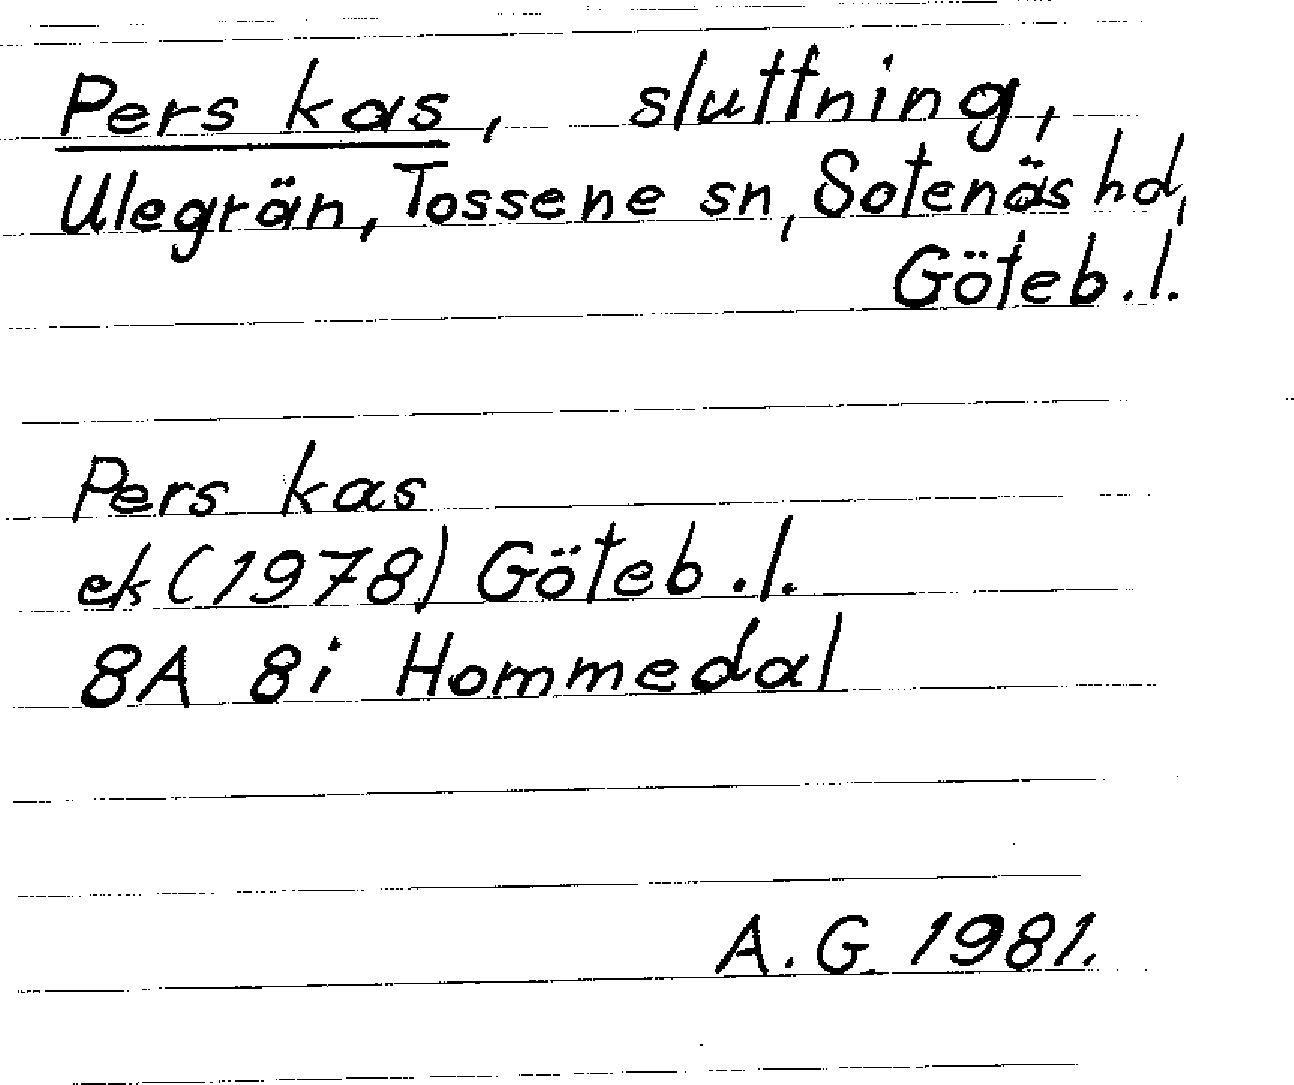 Pers kas, sluttning,
Ulegrän, Tossene sn, Sotenäs hd,
Göteb.l.
Pers kas
ek (1978) Göteb.l.
8A 8i Hommedal
A.G. 1981.